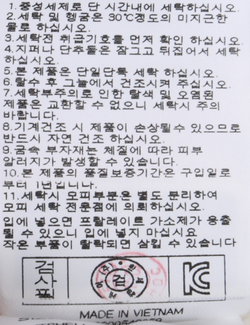 1.중성세제로 단 시간내에 세탁하십시오.
2.세탁 및 헹굼은 30℃정도의 미지근한
물로 하십시오.
3.세탁전 취급기호를 먼저 확인 하십시오.
4.지퍼나 단추등은 잠그고 뒤집어서 세탁
하십시오.
5.본 제품은 단일단독 세탁 하십시오.
6.탈수 후 그늘에서 건조시켜 주십시오.
7.세탁부주의로 인한 탈색 및 오염된
제품은 교환할 수 없으니 세탁시 주의
바랍니다.
8.기계건조 시 제품이 손상될수 있으므로
반드시 자연 건조 하십시오.
9.금속 부자재는 체질에 따라 피부
알러지가 발생할 수 있습니다.
10.본 제품의 품질보증기간은 구입일로
부터 1년입니다.
11.세탁시 모피부분은 별도 분리하여
모피 세탁 전문점에 의뢰하십시오.
입에 넣으면 프탈레이트 가소제가 용출
될수 있으니 입에 넣지 마십시요
작은 부품이 탈락되면 삼킬 수 있습니다
검사필
검
MADE IN VIETNAM